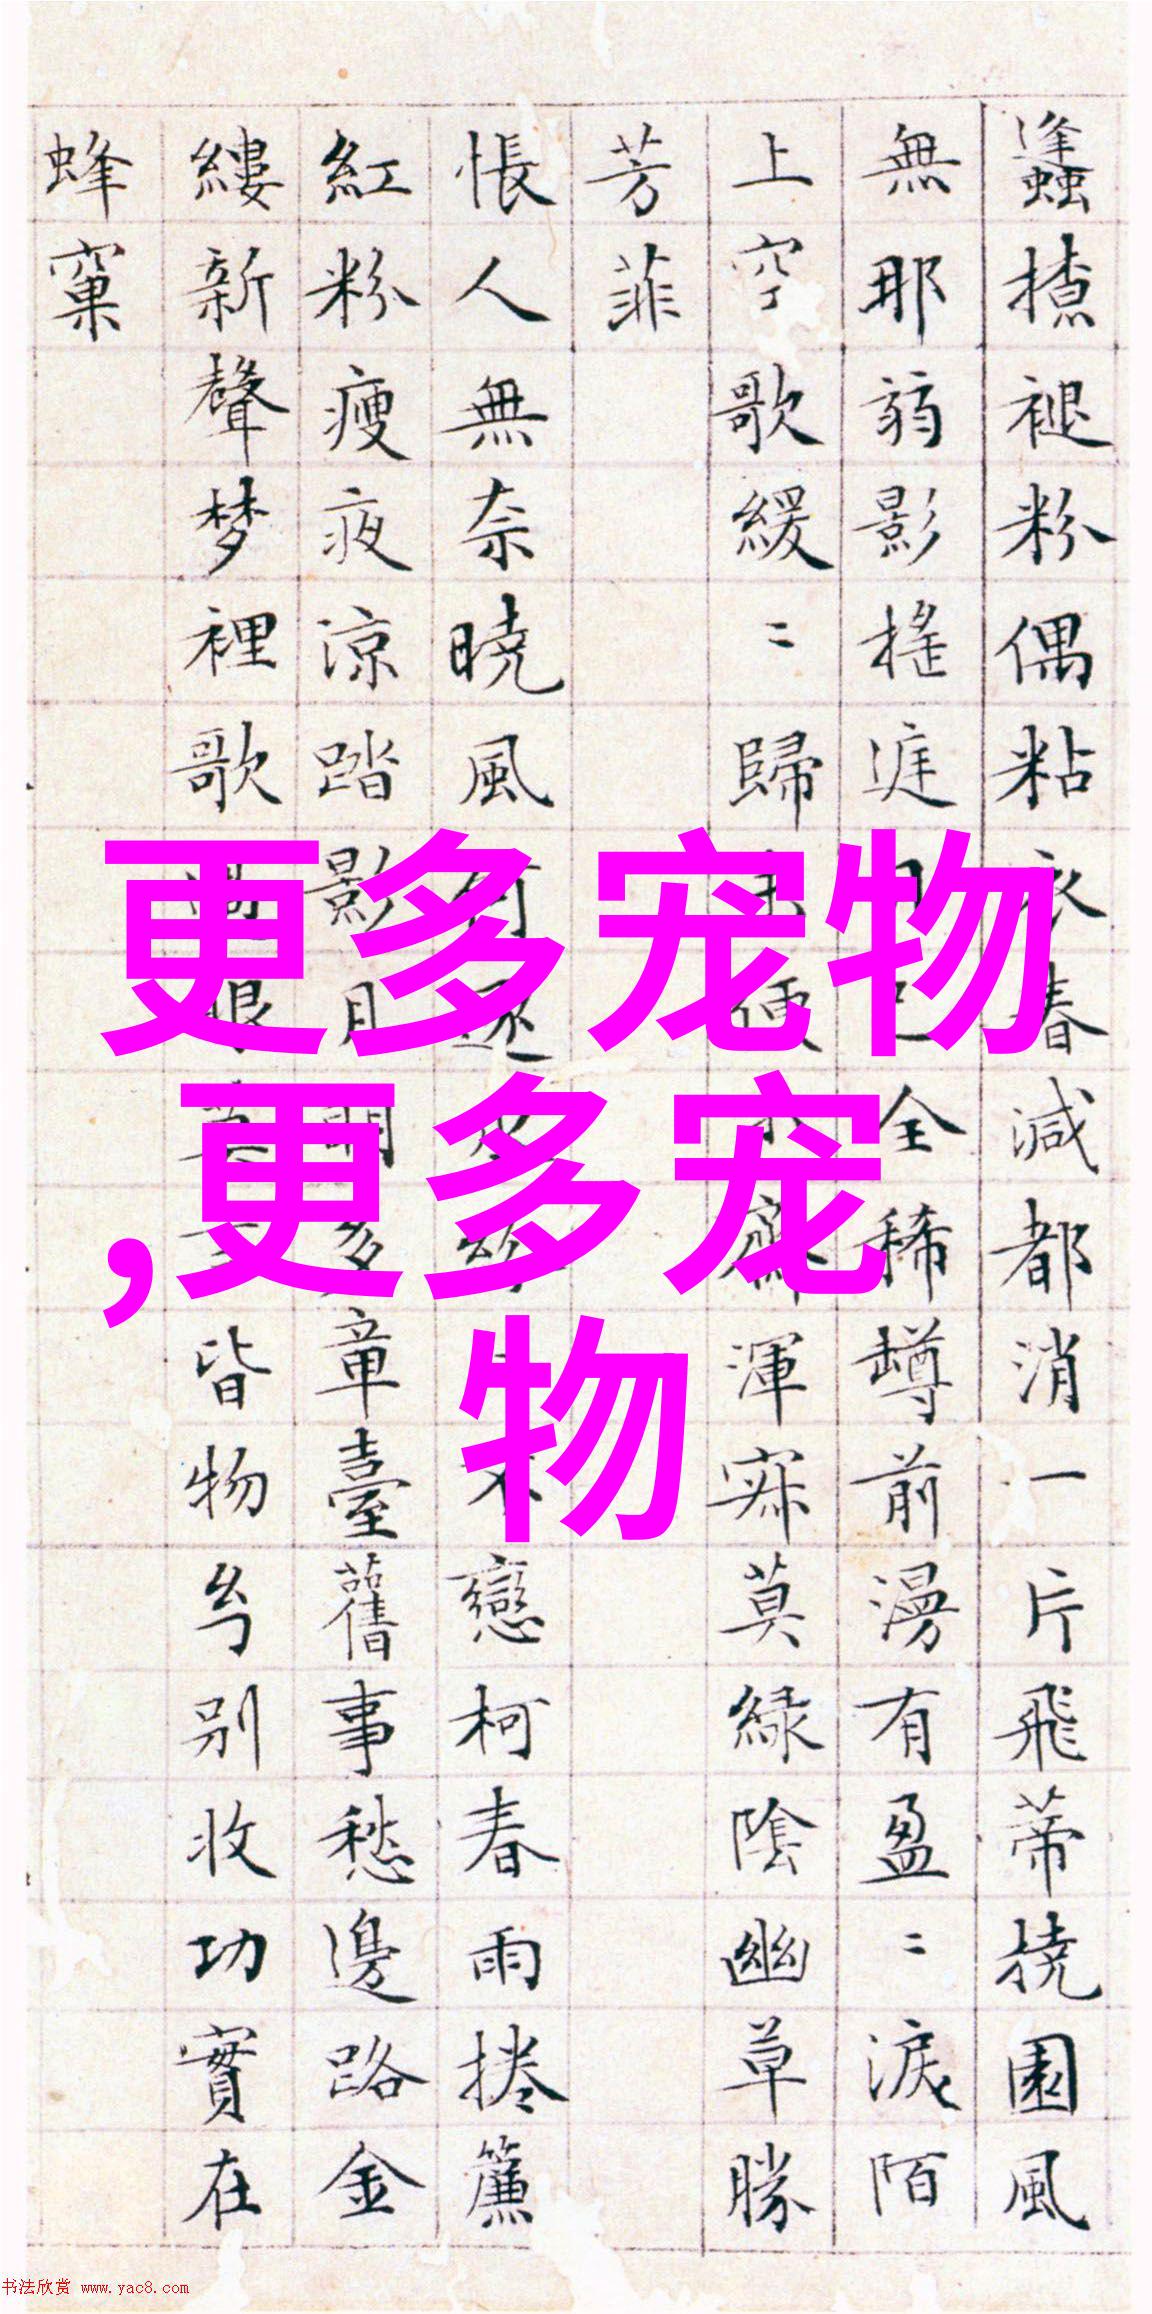 更多宠物
,更多宠
物
蠭褪粉偶粘衣春減都消一片飛蒂撓園風
無那弱影搖全稀罇前漫有盈〻淚陌
上空歌緩〻歸便渾寂莫綠陰幽草勝
芳菲
悵人無奈曉風何逐戀柯春雨捲簾
紅粉瘦夜涼踏影月明多章臺舊事愁邊路金
縷新聲梦裡歌眼皆物别收功實在
蜂窠
书法欣赏 www.yac8.com